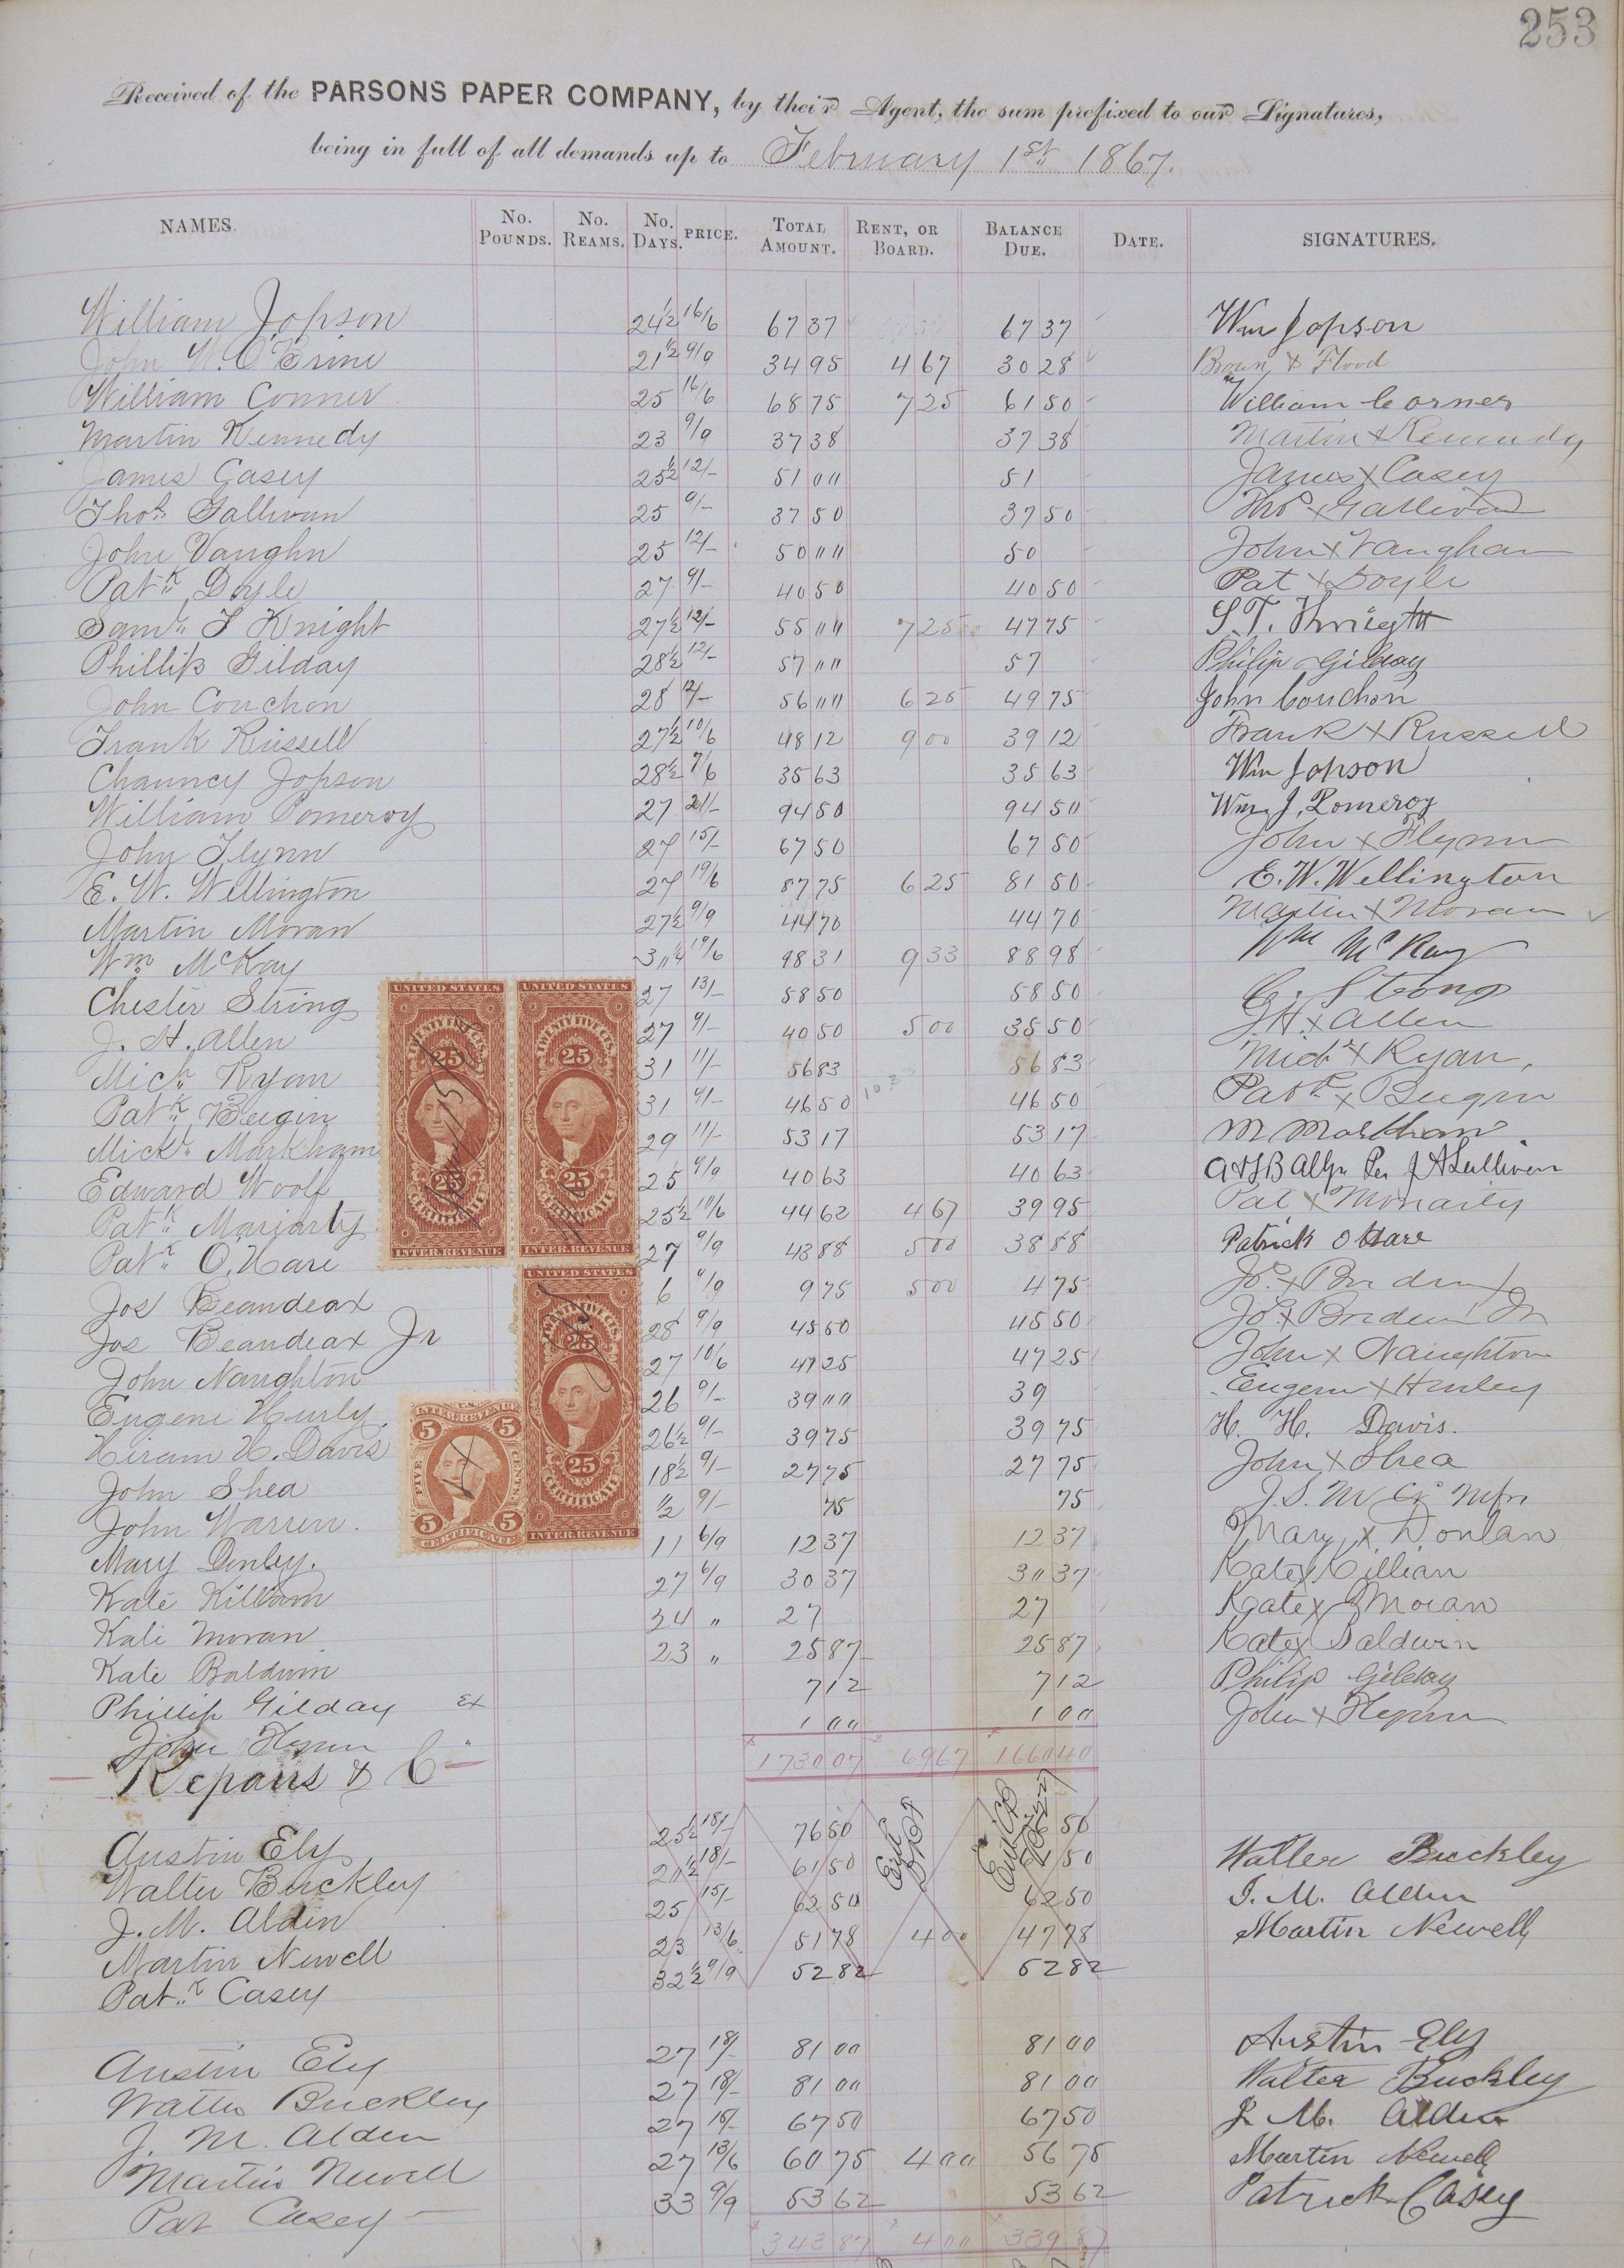 253
Received of the PARSONS PAPER COMPANY, by their Agent, the sum prefixed to our Signatures,
being in full of all demands up to February 1st 1867.
NAMES. No. POUNDS. No. REAMS. No. DAYS. PRICE. TOTAL AMOUNT. RENT, OR BOARD. BALANCE DUE. DATE. SIGNATURES.
William Jopson 24½ 16/6 67 37 67 37 Wm Jopson
John W. O'Brine 21½ 9/9 34 95 4 67 30 28 Brown & Flood
William Conner 25 16/6 68 75 7 25 61 50 William Corner
Martin Kennedy 23 9/9 37 38 37 38 Martin x Kennedy
James Casey 25½ 12/- 51 00 51 James x Casey
Thos. Gallivan 25 9/- 37 50 37 50 Thos x Gallivan
John Vaughn 25 12/- 50 00 50 John x Vaughan
Patk. Doyle 27 9/- 40 50 40 50 Pat x Doyle
Saml. T Knight 27½ 12/- 55 00 7 25 47 75 S. T. Knight
Phillip Gilday 28½ 12/- 57 00 57 Philip Gilday
John Couchon 28 12/- 56 00 6 25 49 75 John Couchon
Frank Russell 27½ 10/6 48 12 9 00 39 12 Frank x Russell
Chauncy Jopson 28½ 7/6 35 63 35 63 Wm Jopson
William Pomeroy 27 21/- 94 50 94 50 Wm J. Pomeroy
John Flynn 27 15/- 67 50 67 50 John x Flynn
E. W. Wellington 27 19/6 87 75 6 25 81 50 E. W. Wellington
Martin Moran 27½ 9/9 44 70 44 70 Martin x Moran
Wm. McKay 30¼ 19/6 98 31 9 33 88 98 Wm McKay
Chester Strong 27 13/- 58 50 58 50 C. Strong
J. H. Allen 27 9/- 40 50 5 00 35 50 J. H. x Allen
Mich. Ryan 31 11/- 56 83 56 83 Mich x Ryan,
Patk. Bergin 31 9/- 46 50 46 50 Patk x Bergin
Michl. Markham 29 11/- 53 17 53 17 M Markham
Edward Woolf 25 9/9 40 63 40 63 A & J B Allyn Per J A Sullivan
Patk. Moriarty 25½ 10/6 44 62 4 67 39 95 Pat x Moriarty
Patk. O. Hare 27 9/9 43 88 5 00 38 88 Patrick O Hare
Jos Beaudeax 6 9/9 9 75 5 00 4 75
Jos Beaudeax Jr 28 9/9 45 50 45 50
John Naughton 27 10/6 47 25 47 25 John x Naughton
Eugene Hurly. 26 9/- 39 00 39 Eugene x Hurley
Hiram H. Davis 26½ 9/- 39 75 39 75 H. H. Davis.
John Shea 18½ 9/- 27 75 27 75 John x Shea
John Warren. ½ 9/- 75 75
Mary Donley. 11 6/9 12 37 12 37 Mary x Donlan
Kate Killiam 27 6/9 30 37 30 37 Kate x Killian
Kate Moran 24 " 27 27 Kate x Moran
Kate Baldwin 23 " 25 87 25 87 Kate x Baldwin
Phillip Gilday Ex 7 12 7 12 Philip Gilday
John Flynn " 1 00 1 00 John x Flynn
$1730 07 $69 67 $1660 40
Repairs & C
Austin Ely 25½ 18/- 76 50 50
Walter Buckley 20½ 18/- 61 50 50 Walter Buckley
J. M. Alden 25 15/- 62 50 62 50 J. M. Alden
Martin Newell 23 13/6 51 78 4 00 47 78 Martin Newell
Patk. Casey 32½ 9/9 52 82 52 82
Austin Ely 27 18/- 81 00 81 00 Austin Ely
Walter Buckley 27 18/- 81 00 81 00 Walter Buckley
J. M. Alden 27 15/- 67 50 67 50 J. M. Alden
Martin Newell 27 13/6 60 75 4 00 56 75 Martin Newell
Pat Casey 33 9/9 53 62 53 62 Patrick Casey
$343 87 $4 00 $339 87
UNITED STATES
TWENTY FIVE CTS.
25
25
CERTIFICATE
INTER. REVENUE
UNITED STATES
TWENTY FIVE CTS.
25
25
CERTIFICATE
INTER. REVENUE
UNITED STATES
TWENTY FIVE CTS.
25
25
CERTIFICATE
INTER. REVENUE
U.S.
INTER. REVENUE
5 5
FIVE CENTS
5 5
CERTIFICATE